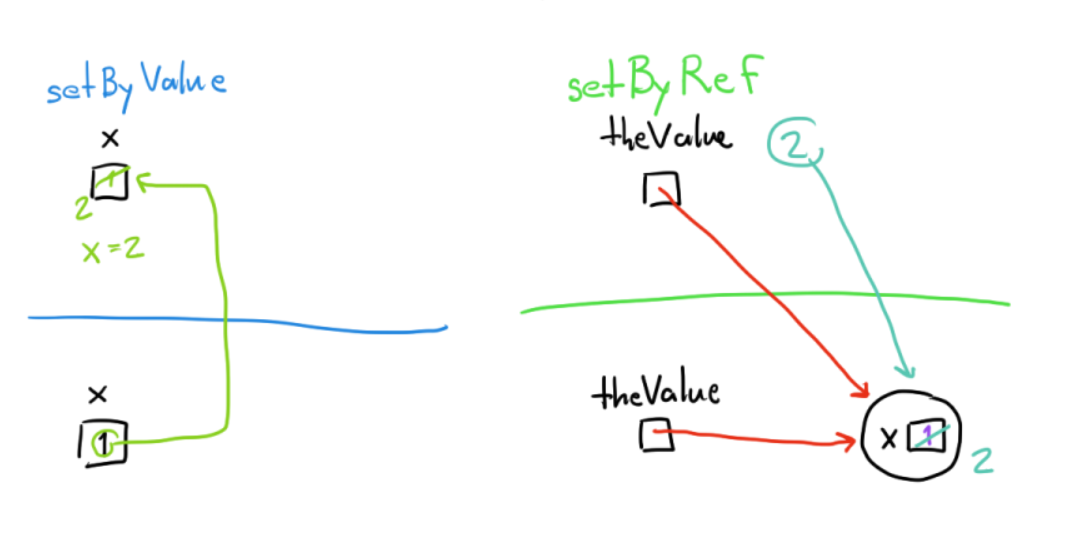 setByValue
x
1
2
x=2
x
1
setByRef
theValue
2
theValue
x 1
2